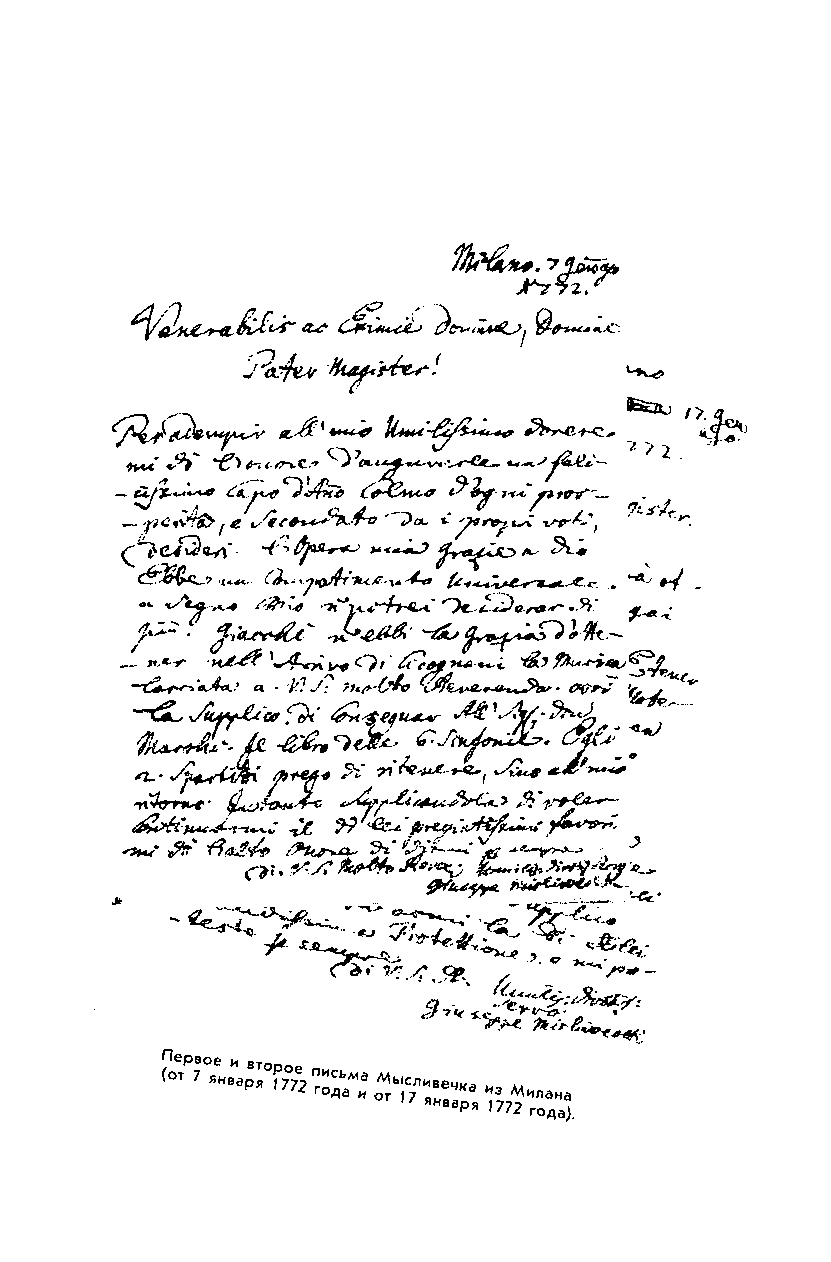 Milano. 7 Gen̄go
1772.
Venerabilis ac Eximie Domine, Domine
Pater Magister!
Per adempir all'mio Umilissimo dovere
mi dò l'onore d'augurarle un feli-
-cissimo capo d'Año Colmo d'ogni pros-
-perità, e Secondato da i propri voti,
e desideri. L'Opera mia grazie a dio
Ebbe un Compatimento Universale.
a Segno Chio n potrei desiderar di
più. Giacchè n'ebbi la grazia d'otte-
-ner nell'Arivo di Cicognani la Musica
lasciata a V. S. molto Reverenda. ora
La Supplico, di Consegnar All'Sig. don
Marchi. Il libro delle 6. Sinfonie. Egli
2. Spartiti prego di ritenere, Sino all'mio
ritorno. Intanto Supplicandola di voler
Continuarmi il di lei pregiatissimi favori
mi dò l'alto Onore di dirmi p sempre
di V. S. Molto Reva:
Giuseppe Misliwecek
no
17. Gen
772.
gister.
à of
qai
en
la di Lei
Protettione, e mi pro-
-testo p sempre
di V. S. R.
Umilis: divot:
Servo
Giuseppe Misliwecek
Первое и второе письма Мысливечка из Милана
(от 7 января 1772 года и от 17 января 1772 года).